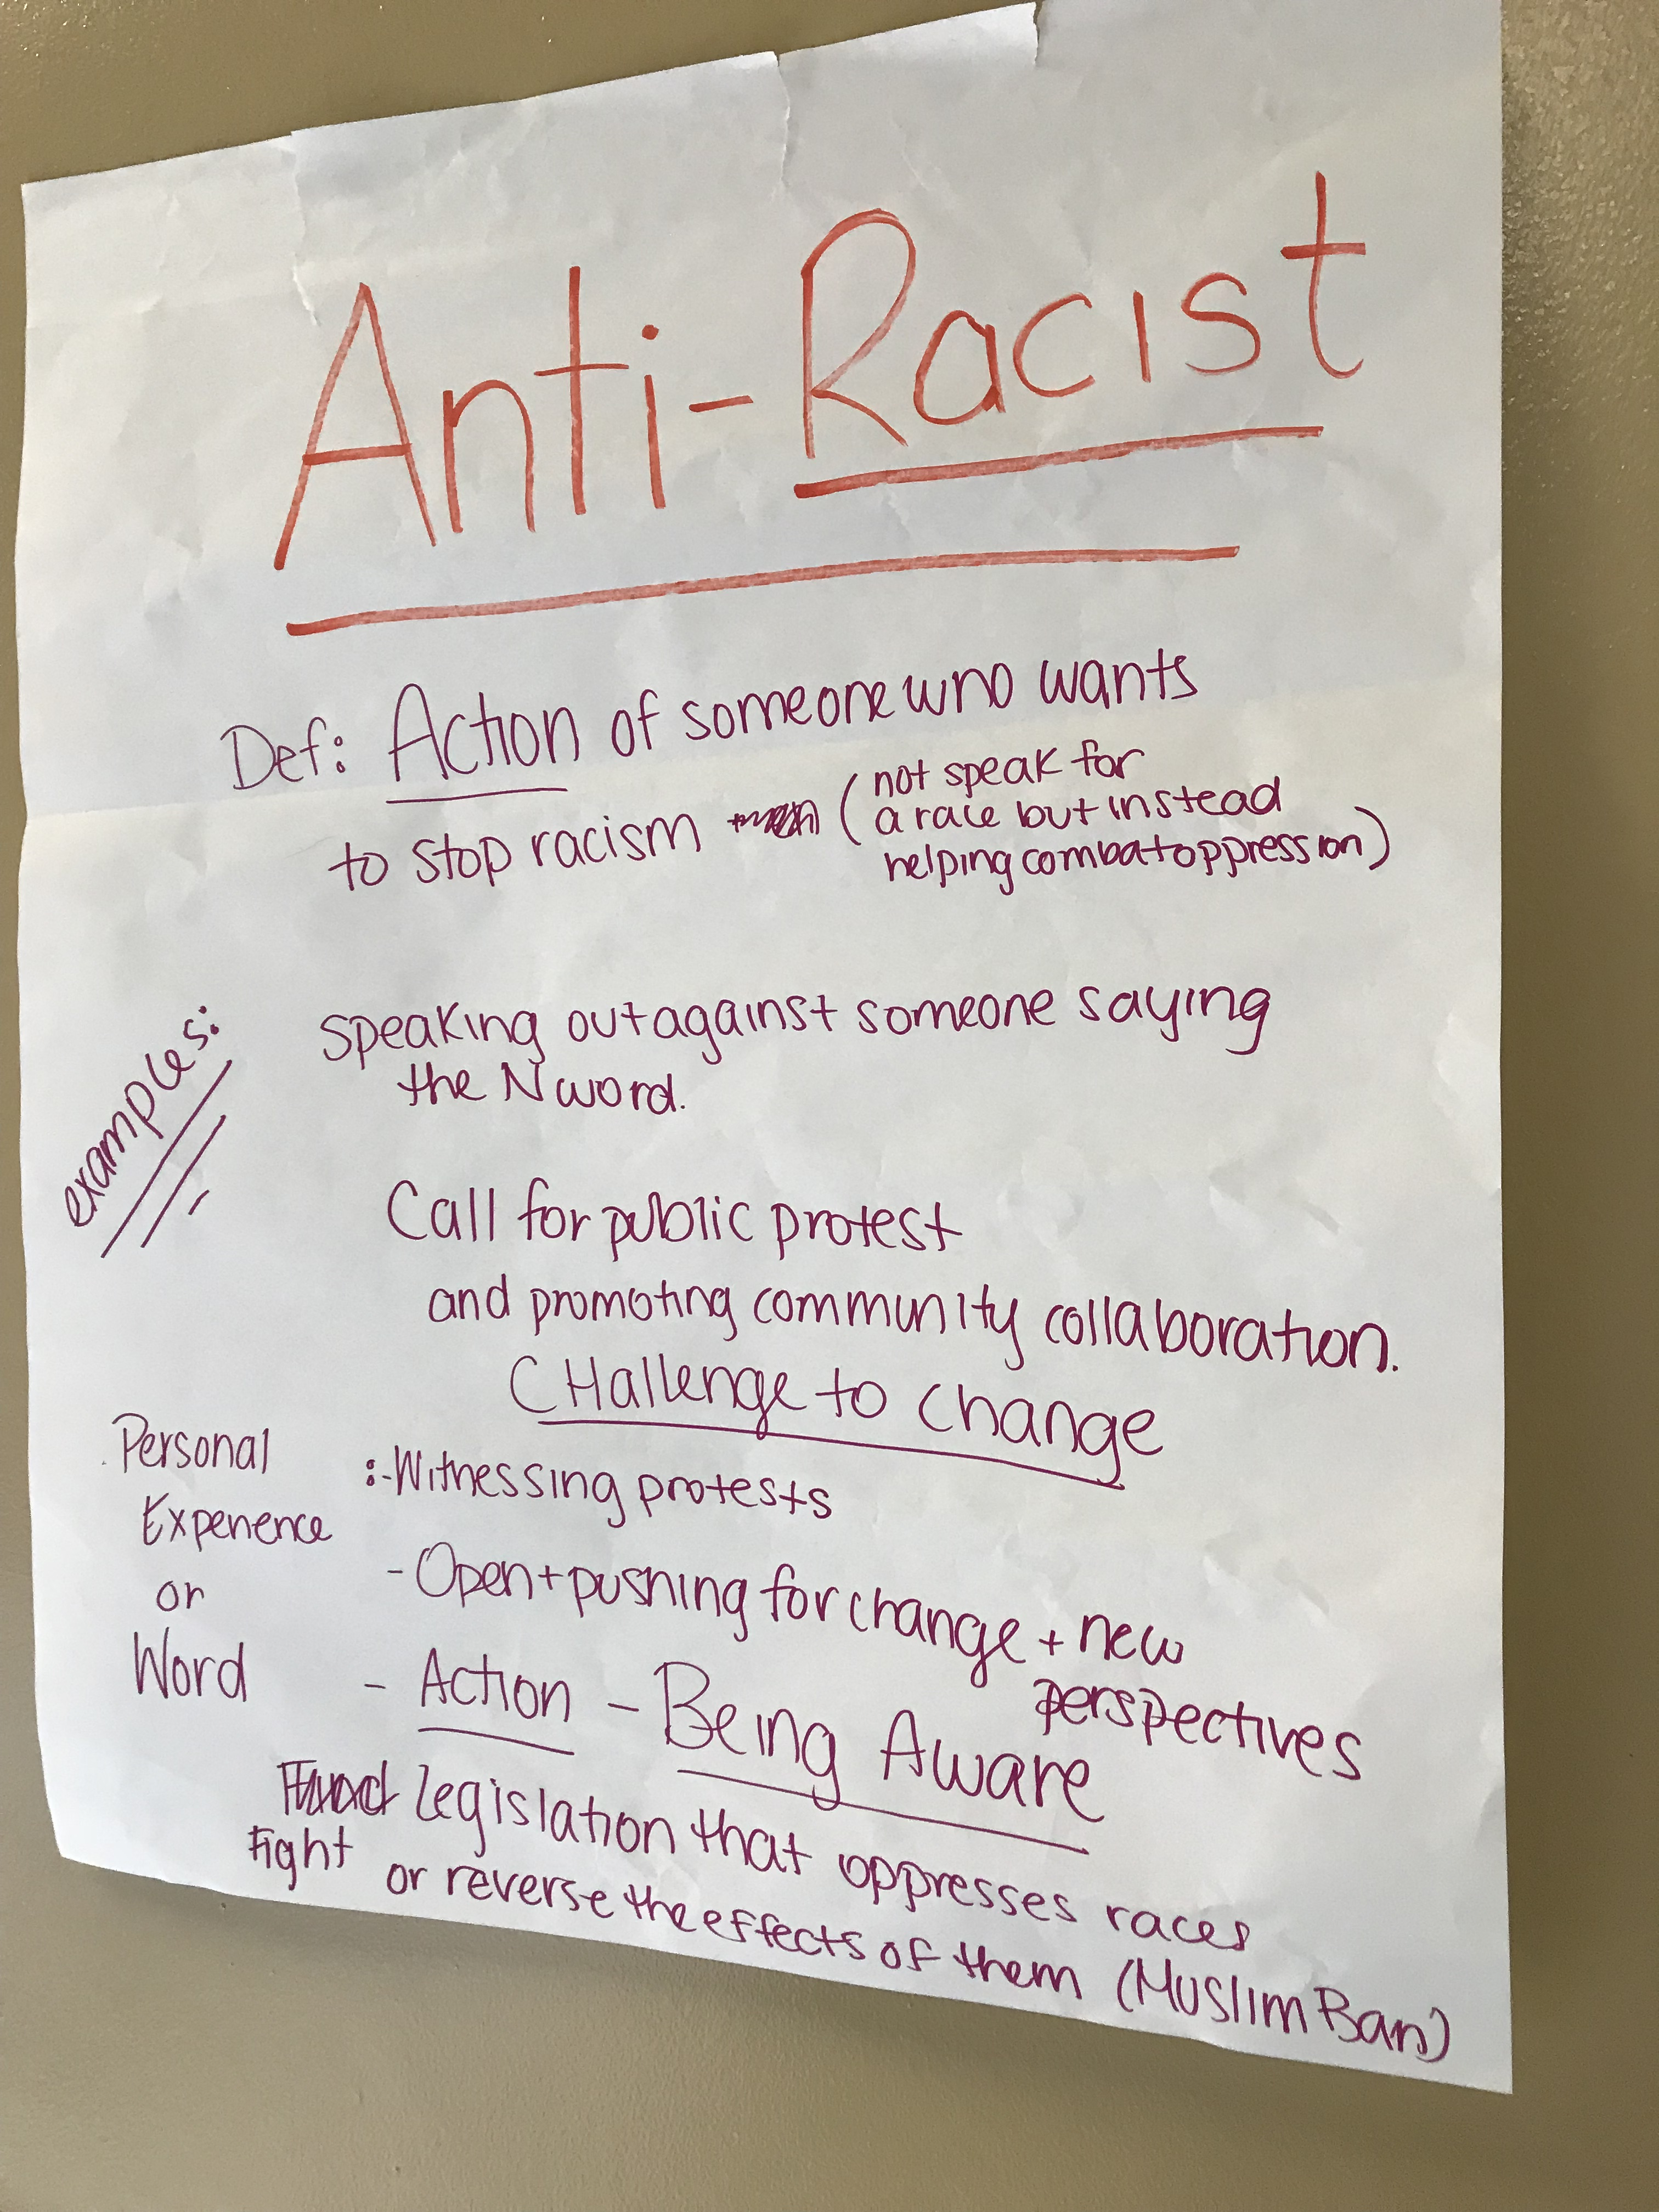 Anti-Racist
Def: Action of someone who wants
to stop racism (not speak for
a race but instead
helping combat oppression)
examples:
Speaking out against someone saying
the N word.
Call for public protest
and promoting community collaboration.
CHallenge to change
Personal
Experience
or
Word
:-Witnessing protests
- Open + pushing for change + new
perspectives
- Action - Being Aware
Legislation that oppresses races
Fight or reverse the effects of them (Muslim Ban)